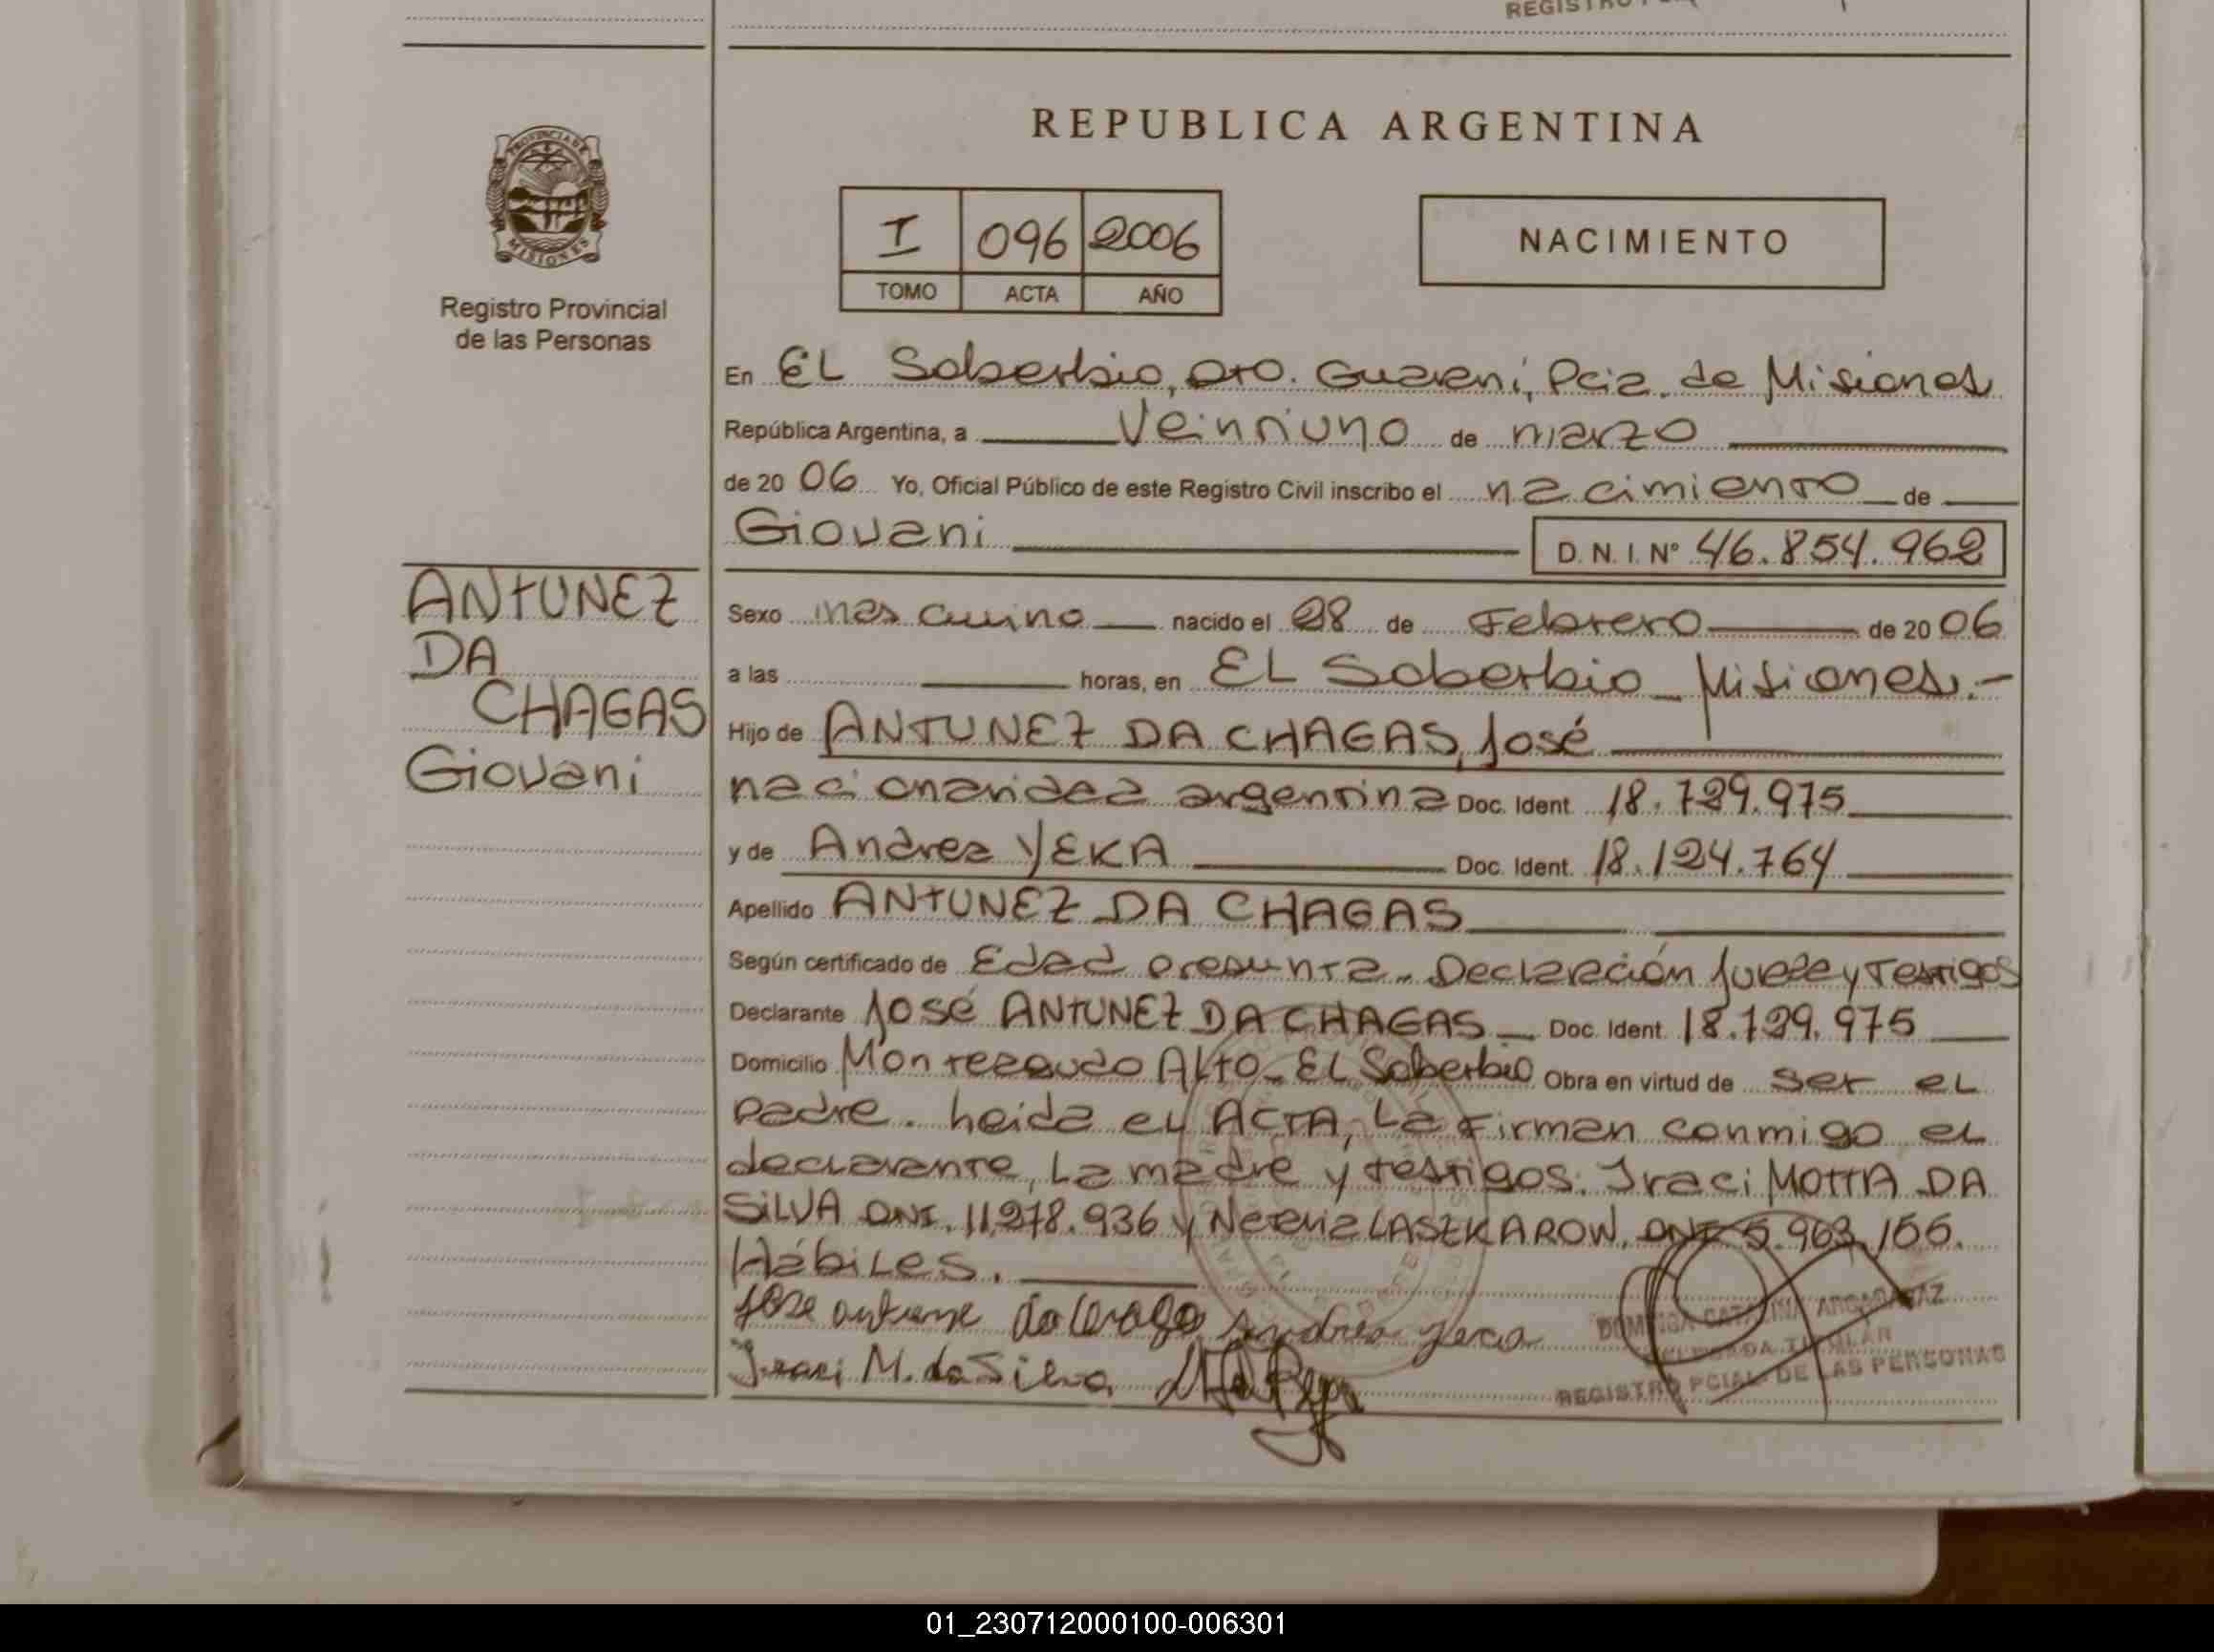 REPUBLICA ARGENTINA
PROVINCIA DE
MISIONES
Registro Provincial
de las Personas
I 096 2006
TOMO ACTA AÑO
NACIMIENTO
En EL Soberbio, Dto. Guaraní, Pcia. de Misiones
República Argentina, a Veintiuno de marzo
de 20 06 Yo, Oficial Público de este Registro Civil inscribo el nacimiento de
Giovani D.N.I. Nº 46.854.962
ANTUNEZ
DA
CHAGAS
Giovani
Sexo masculino nacido el 28 de Febrero de 20 06
a las horas, en EL Soberbio - Misiones.-
Hijo de ANTUNEZ DA CHAGAS, José
nacionalidad argentina Doc. Ident. 18.729.975
y de Andrea YEKA Doc. Ident. 18.124.764
Apellido ANTUNEZ DA CHAGAS
Según certificado de Edad presunta. Declaración Jurada y Testigos
Declarante José ANTUNEZ DA CHAGAS - Doc. Ident. 18.729.975
Domicilio Monteagudo Alto - EL Soberbio Obra en virtud de ser el
Padre. Leida el ACTA, La Firman conmigo el
declarante, La madre y testigos: Iraci MOTTA DA
SILVA DNI. 11.278.936 y LASZKAROW, DNI 5.963.155.
Hábiles.
Jose antune da Andrea yeca
Iraci M. da Silva
DOMINGA CATALINA
TITULAR
REGISTRO PCIAL. DE LAS PERSONAS
01_230712000100-006301